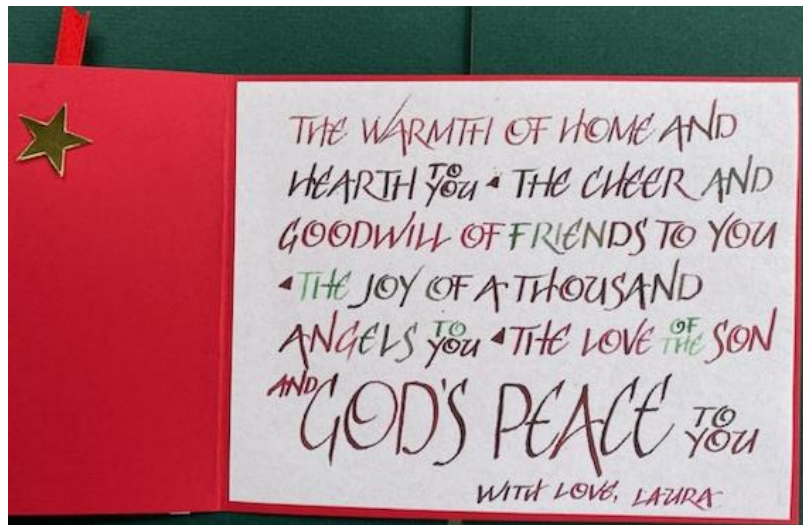 THE WARMTH OF HOME AND
HEARTH TO YOU ◂ THE CHEER AND
GOODWILL OF FRIENDS TO YOU
◂ THE JOY OF A THOUSAND
ANGELS TO YOU ◂ THE LOVE OF THE SON
AND GOD'S PEACE TO YOU
WITH LOVE, LAURA